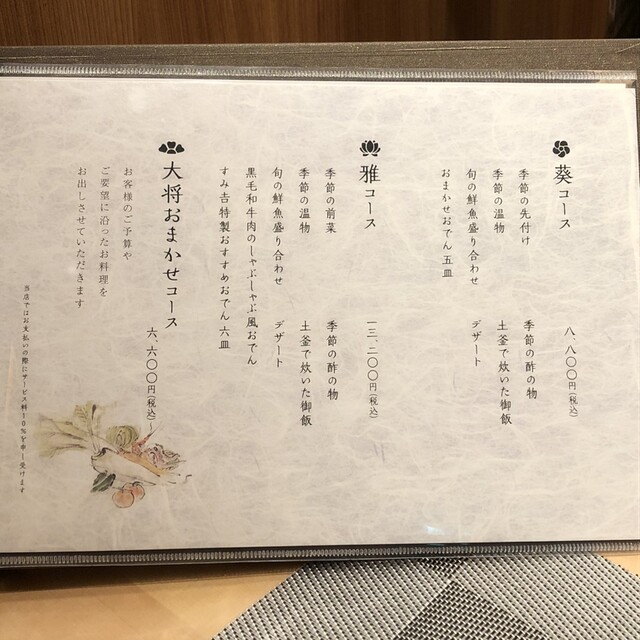 葵コース
季節の先付け
季節の温物
旬の鮮魚盛り合わせ
おまかせおでん五皿
季節の酢の物
土釜で炊いた御飯
デザート
八、八〇〇円(税込)
雅コース
季節の前菜
季節の温物
旬の鮮魚盛り合わせ
黒毛和牛肉のしゃぶしゃぶ風おでん
すみ吉特製おすすめおでん六皿
季節の酢の物
土釜で炊いた御飯
デザート
一三、二〇〇円(税込)
大将おまかせコース
六、六〇〇円(税込)〜
お客様のご予算や
ご要望に沿ったお料理を
お出しさせていただきます
当店ではお支払いの際にサービス料10%を申し受けます